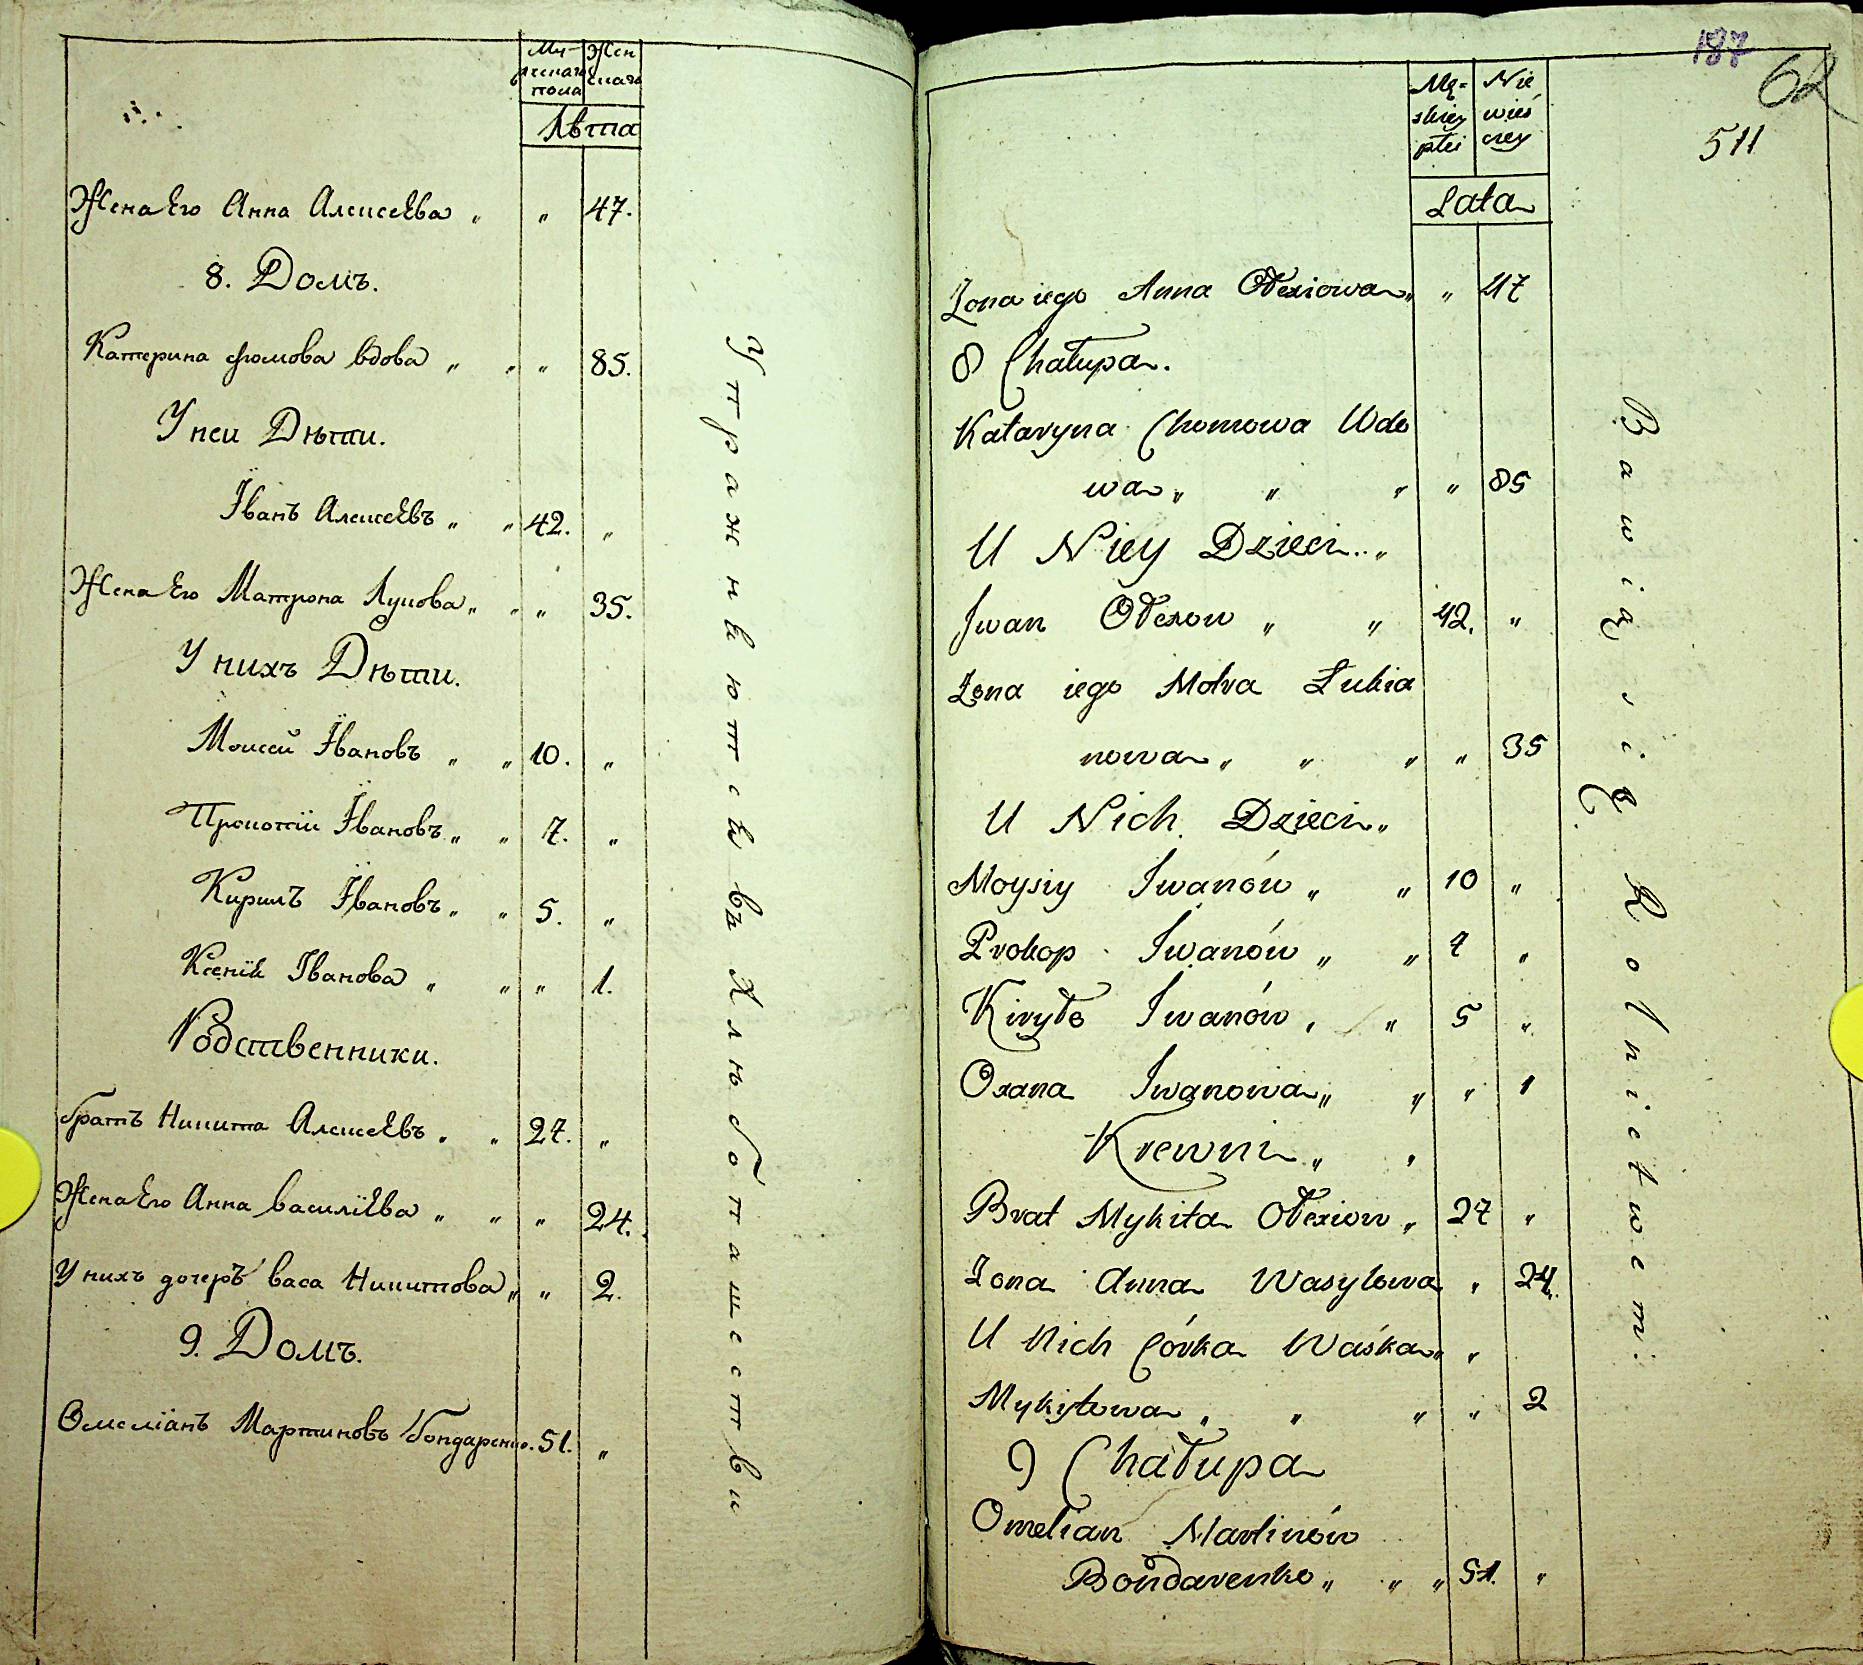 Му-
жескаго
пола
Жен
скаго
Лѣта
Жена Его Анна Алексеева " " 47.
8. Домъ.
Катерина Фомова вдова " " " 85.
У неи Дѣти.
Їванъ Алексеевъ " " 42. "
Жена Его Матрона Луцова " " " 35.
У нихъ Дѣти.
Моисей Ївановъ " " 10. "
Прокопїй Ївановъ " " 7. "
Кирилъ Ївановъ " " 5. "
Ксенїя Іванова " " " 1.
Родственники.
братъ Никита Алексеевъ " " 27. "
Жена Его Анна василїева " " " 24.
У нихъ дочеръ васа Никитова " " 2.
9. Домъ.
Омелїанъ Мартиновъ Бондаренко. 51. "
Упражняются въ хлѣбопашестви
187
62
511
Mę-
skiey
płci
Nie
wieś
czey
Lata
Żona iego Anna Ołexiowa " " 47
8 Chałupa.
Kataryna Chomowa Wdo
wa " " " " 85
U Niey Dzieci "
Iwan Ołexow " " 42. "
Żona iego Motra Łukia
nowa " " " " 35
U Nich Dzieci "
Moysiy Iwanów " " 10 "
Prokop Iwanów " " 7 "
Kiryło Iwanów " " 5 "
Oxana Iwanowa " " " 1
Krewni " "
Brat Mykita Ołexiow " 27 "
Żona Anna Wasylowa " 24.
U Nich Córka Waśka " "
Mykitowa " " " " 2
9 Chałupa
Omelian Martinów
Bondarenko " " " 51. "
Bawią się Rolnictwem.